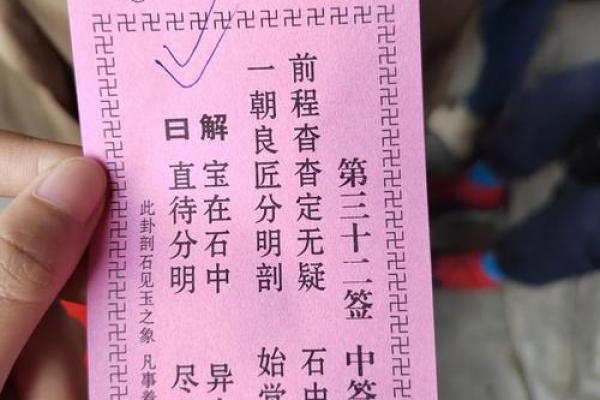 第三十二签 中签
前程杳杳定无疑 石中
一朝良匠分明剖 始
解曰
宝在石中 异
直待分明 尽
此卦剖石见玉之象 凡事着